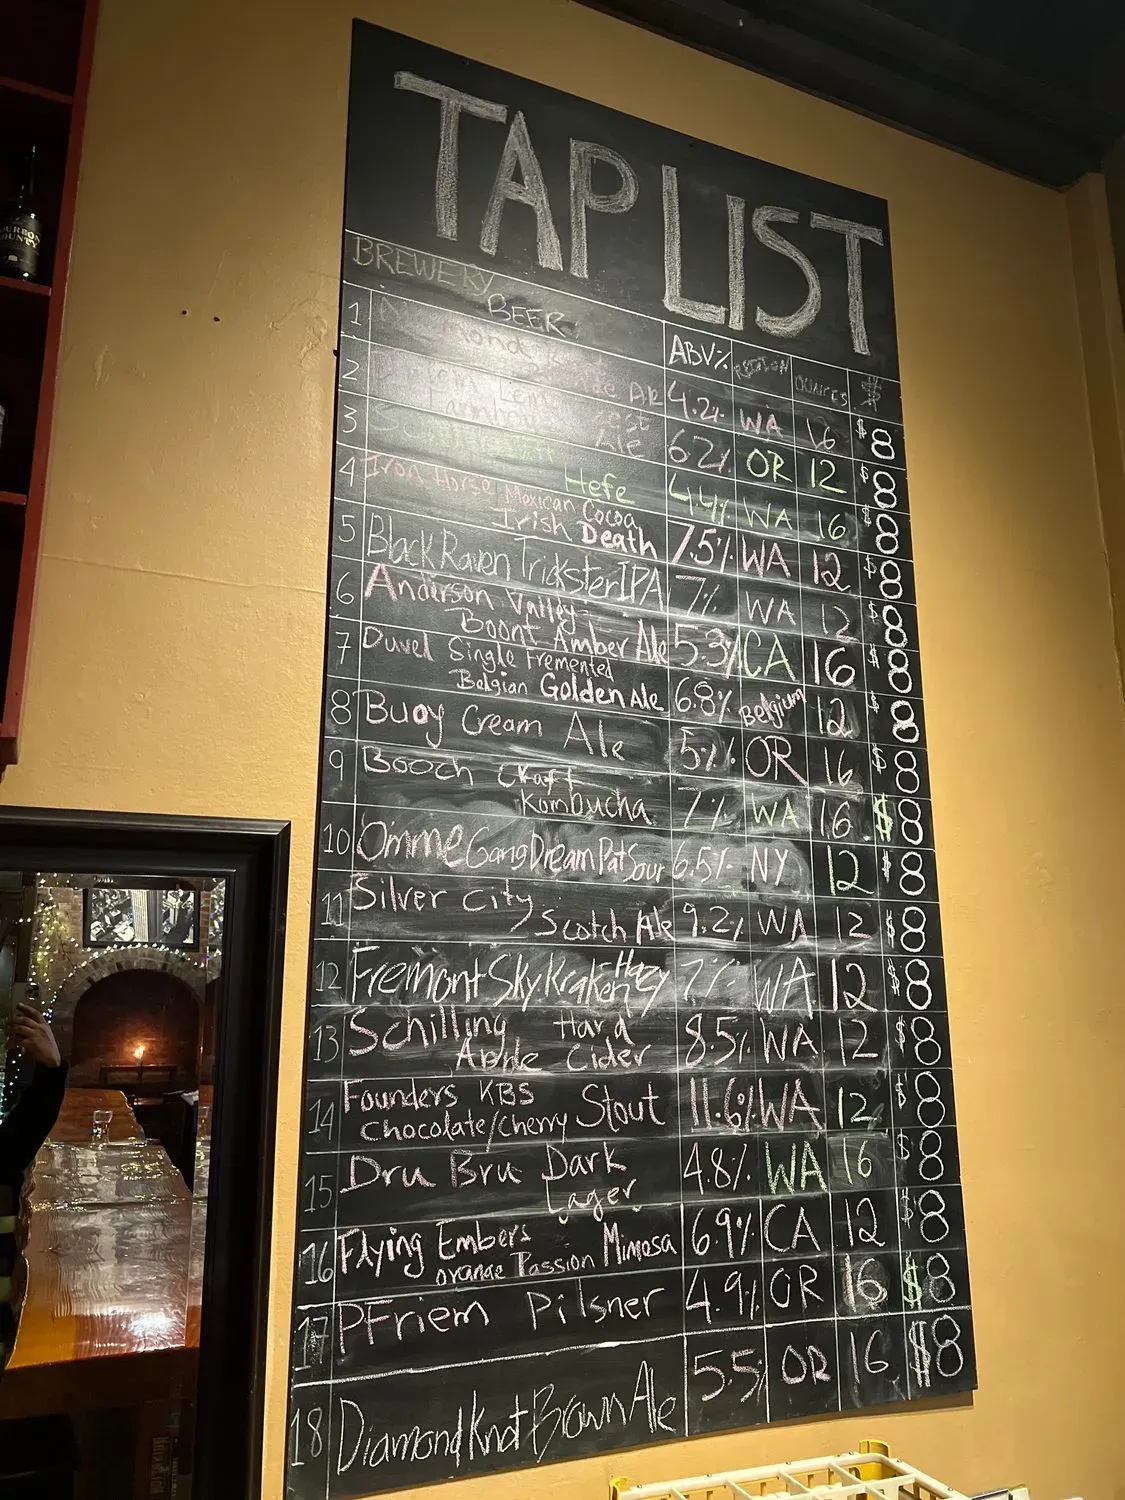 TAP LIST
BREWERY BEER ABV% REGION OUNCES $
1 Ale 4.2% WA 16 $8
2 Ale 6.2% OR 12 $8
3 Hefe 4.4% WA 16 $8
4 Iron Horse Mexican Cocoa
Irish Death 7.5% WA 12 $8
5 Black Raven Trickster IPA 7% WA 12 $8
6 Anderson Valley
Boont Amber Ale 5.3% CA 16 $8
7 Duvel Single Fremented
Belgian Golden Ale 6.8% Belgium 12 $8
8 Buoy Cream Ale 5% OR 16 $8
9 Booch Craft
Kombucha 7% WA 16 $8
10 Omme Gang Dream Pat Sour 6.5% NY 12 $8
11 Silver City
Scotch Ale 9.2% WA 12 $8
12 Fremont Sky Kraken Hazy 7% WA 12 $8
13 Schilling Hard
Apple Cider 8.5% WA 12 $8
14 Founders KBS
Chocolate/Cherry Stout 11.6% WA 12 $8
15 Dru Bru Dark
Lager 4.8% WA 16 $8
16 Flying Embers
orange Passion Mimosa 6.9% CA 12 $8
17 PFriem Pilsner 4.9% OR 16 $8
18 Diamond Knot Brown Ale 5.5% OR 16 $8